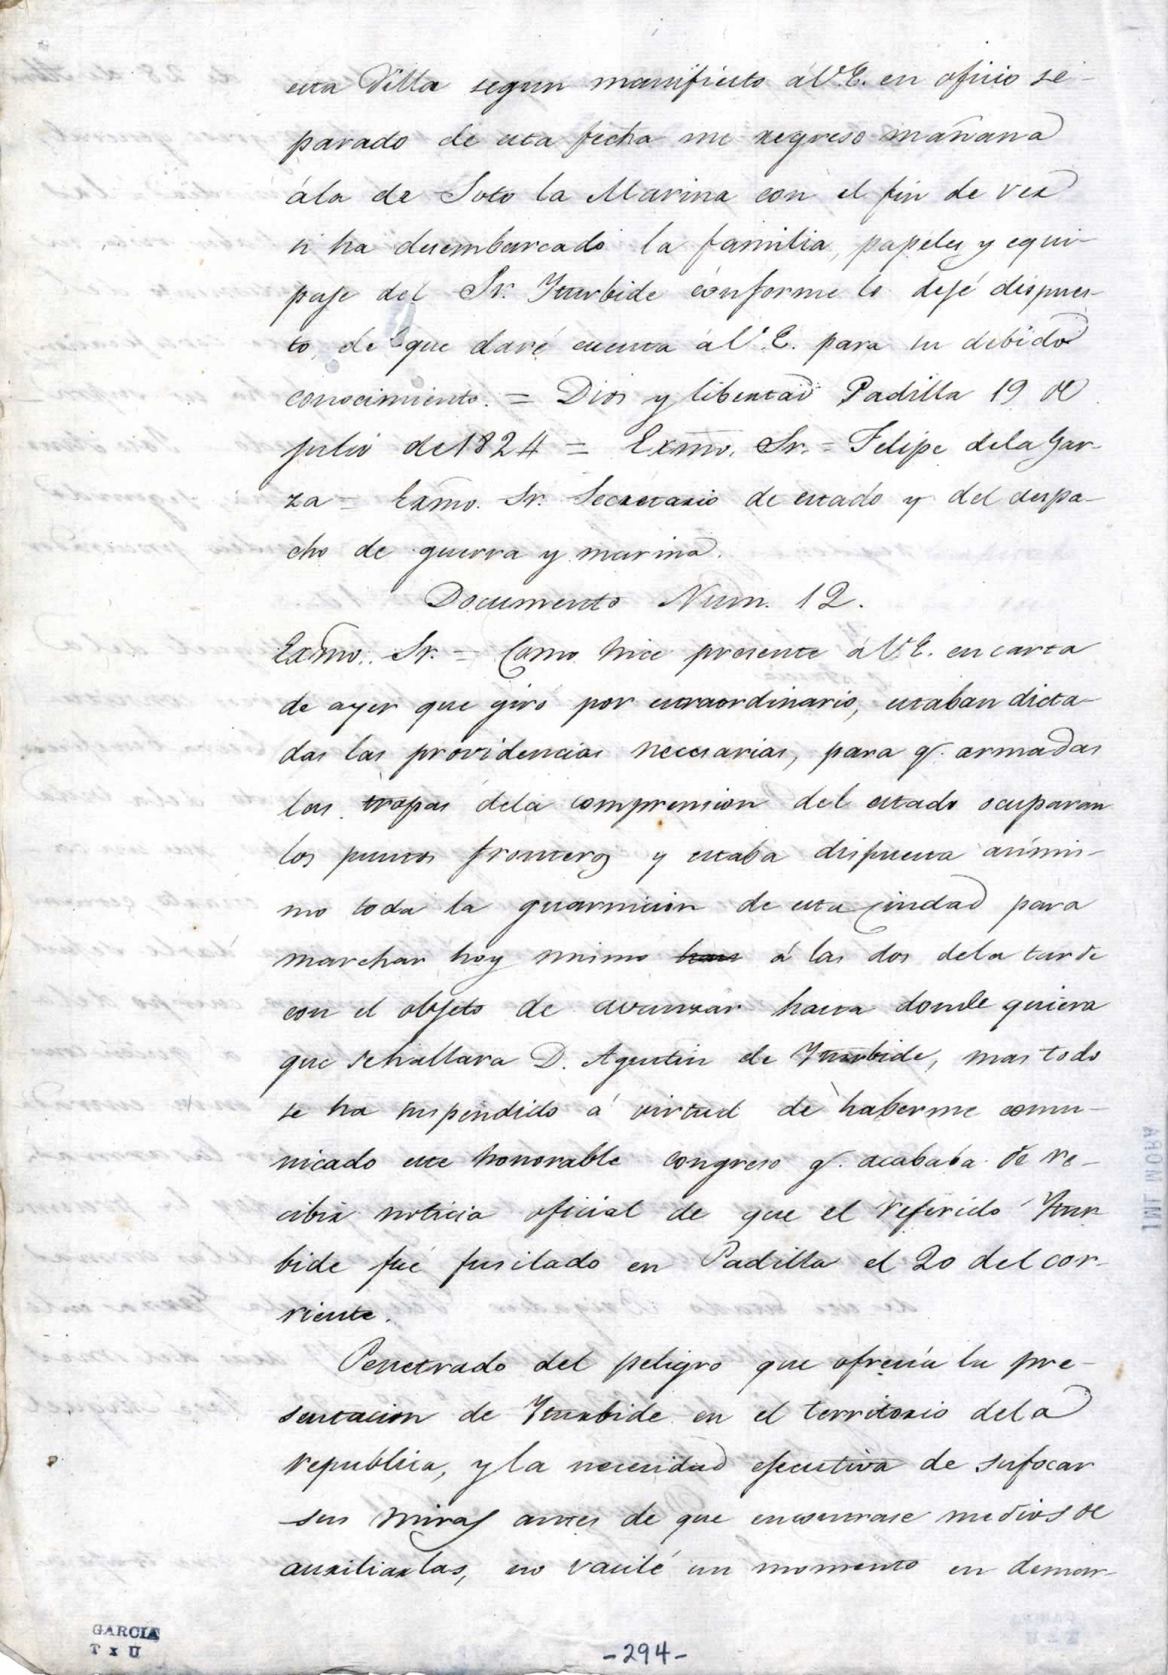 esta Villa segun manifiesto á V.E. en oficio se-
parado de esta fecha me regreso mañana
á la de Soto la Marina con el fin de ver
si ha desembarcado la familia, papeles y equi-
paje del Sr. Yturbide conforme lo dejé dispues-
to, de que daré cuenta á V.E. para su debido
conocimiento. = Dios y libertad Padilla 19 de
julio de 1824 = Exmo. Sr. = Felipe de la Gar-
za = Exmo. Sr. Secretario de estado y del despa-
cho de guerra y marina.
Documento Num. 12.
Exmo. Sr. = Como hice presente á V.E. en carta
de ayer que giró por extraordinario, estaban dicta-
das las providencias necesarias, para q. armadas
las tropas de la comprension del estado ocuparan
los puntos fronteros y estaba dispuesta asimis-
mo toda la guarnicion de esta ciudad para
marchar hoy mismo á las dos de la tarde
con el objeto de avanzar hasta donde quiera
que se hallara D. Agustin de Yturbide, mas todo
se ha suspendido á virtud de haberme comu-
nicado este honorable congreso q. acababa de re-
cibir noticia oficial de que el referido Ytur-
bide fué fusilado en Padilla el 20 del cor-
riente.
Penetrado del peligro que ofrecia la pre-
sentacion de Yturbide en el territorio de la
republica, y la necesidad ejecutiva de sufocar
sus miras antes de que encontrase medios de
auxiliarlas, no vacilé un momento en demar-
GARCIA
T x U
-294-
INI MORA